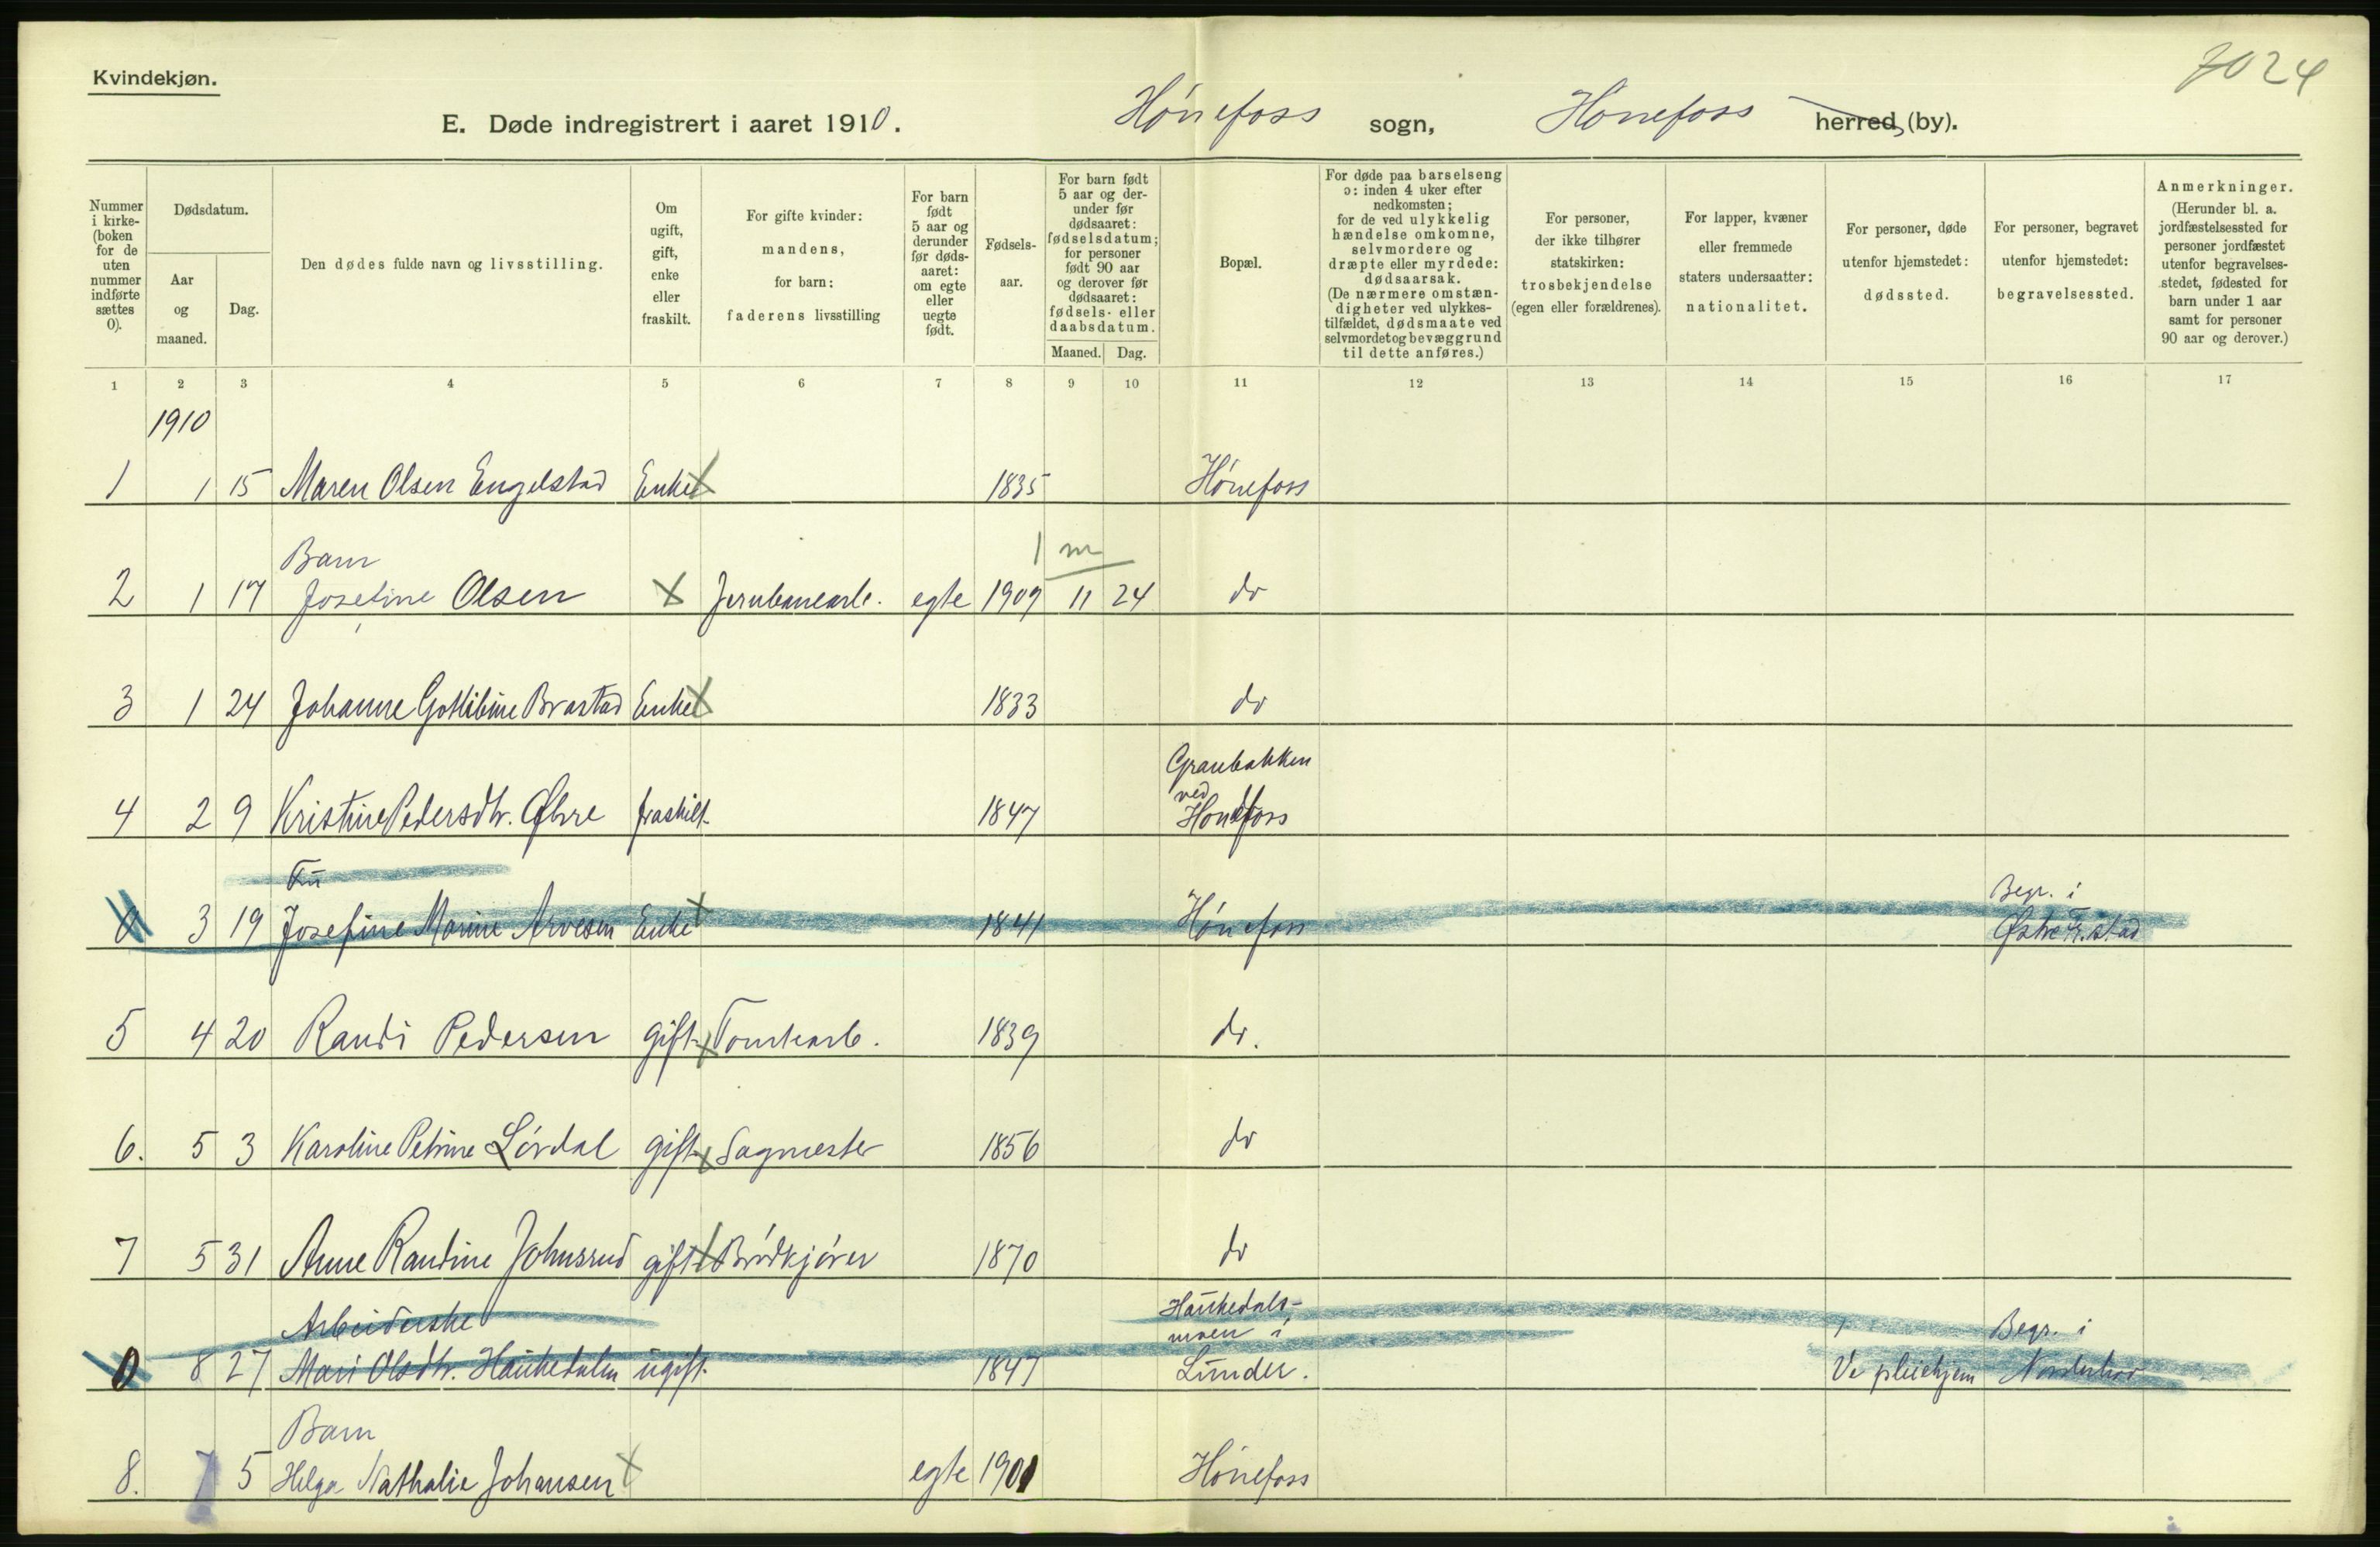 7024
Kvindekjøn.
E. Døde indregistrert i aaret 1910. Hónefoss sogn, Honefoss herred, (by).
Nummer i kirke- (boken for de uten nummer indførte sættes 0).
Dødsdatum.
Aar og maaned.
Dag.
Den dødes fulde navn og livsstilling.
Om ugift, gift, enke eller fraskilt.
For gifte kvinder: mandens, for barn: faderens livsstilling
For barn født 5 aar og derunder før døds- aaret: om egte eller uegte født.
Fødsels- aar.
For barn født 5 aar og der- under før dødsaaret: fødselsdatum; for personer født 90 aar og derover før dødsaaret: fødsels- eller daabsdatum.
Maaned. Dag.
Bopæl.
For døde paa barselseng ɔ: inden 4 uker efter nedkomsten; for de ved ulykkelig hændelse omkomne, selvmordere og dræpte eller myrdede: dødsaarsak. (De nærmere omstæn- digheter ved ulykkes- tilfældet, dødsmaate ved selvmordet og bevæggrund til dette anføres.)
For personer, der ikke tilhører statskirken: trosbekjendelse (egen eller forældrenes).
For lapper, kvæner eller fremmede staters undersaatter: nationalitet.
For personer, døde utenfor hjemstedet: dødssted.
For personer, begravet utenfor hjemstedet: begravelsessted.
Anmerkninger. (Herunder bl. a. jordfæstelsessted for personer jordfæstet utenfor begravelses- stedet, fødested for barn under 1 aar samt for personer 90 aar og derover.)
1 2 3 4 5 6 7 8 9 10 11 12 13 14 15 16 17
1910
1 1 15 Maren Olsen Engelstad Enke 1835 Hónefoss
Barn 1 m
2 1 17 Josefine Olsen Jernbanearb. egte 1909 11 24 do
3 1 24 Johanne Gottlibine Brastad Enke 1833 do
Granbakken
ved
4 2 9 Kristine Pedersdtr. Øhre fraskilt. 1847 Honefoss
Frú Begr. i
0 3 19 Josefine Marine Arvesen Enke 1841 Hónefoss Østre Fr.stad
5 4 20 Randi Pedersen gift Tomtearb. 1839 do.
6. 5 3 Karoline Petrine Lórdal gift Sagmester 1856 do
7 5 31 Anne Randine Johnsrud gift Bródkjórer 1870 do
Arbeiderske Haukedals-
moen i Begr. i
0 8 27 Mari Olsdtr. Haukedalen ugift. 1847 Lunder. Ve pleiehjem Norderhov
Barn
8. 7 5 Helga Nathalie Johansen egte 1901 Hónefoss